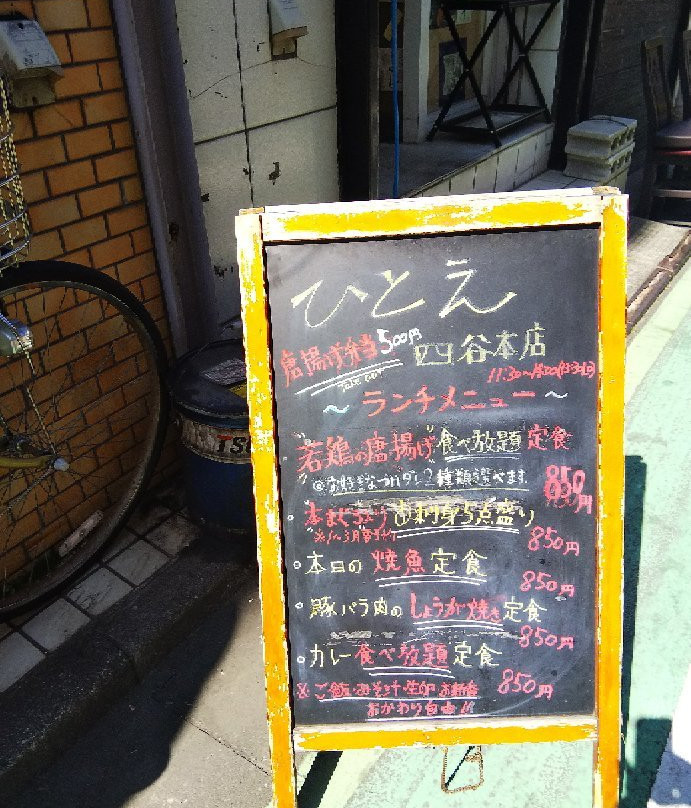 ひとえ
唐揚げ弁当500円
四谷本店
～ランチメニュー～
若鶏の唐揚げ食べ放題定食
850円
本まぐろ お刺身5点盛り
850円
本日の焼魚定食
850円
豚バラ肉のしょうが焼き定食
850円
カレー食べ放題定食
850円
※ご飯・みそ汁・生卵・お新香
おかわり自由!!